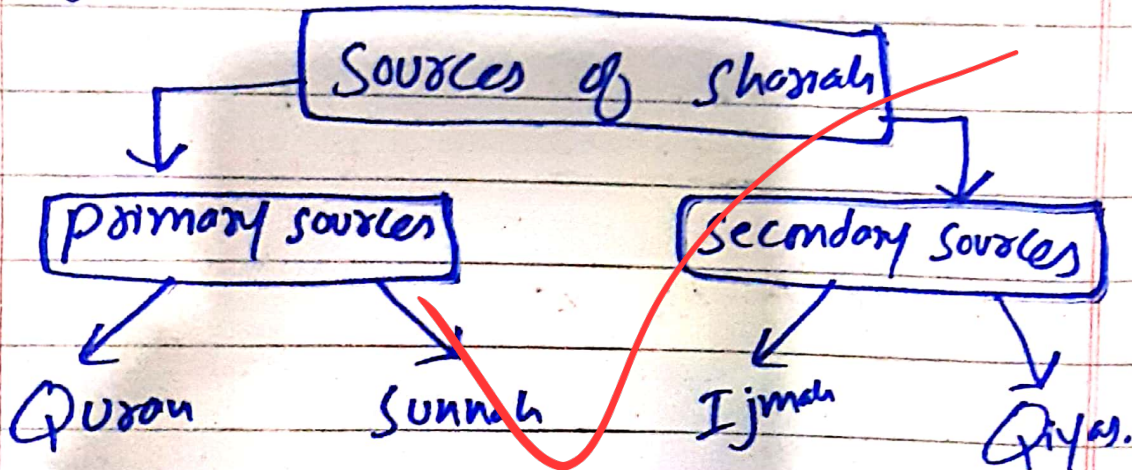 Sources of Shariah
Primary sources
Secondary sources
Quran
Sunnah
Ijmah
Qiyas.